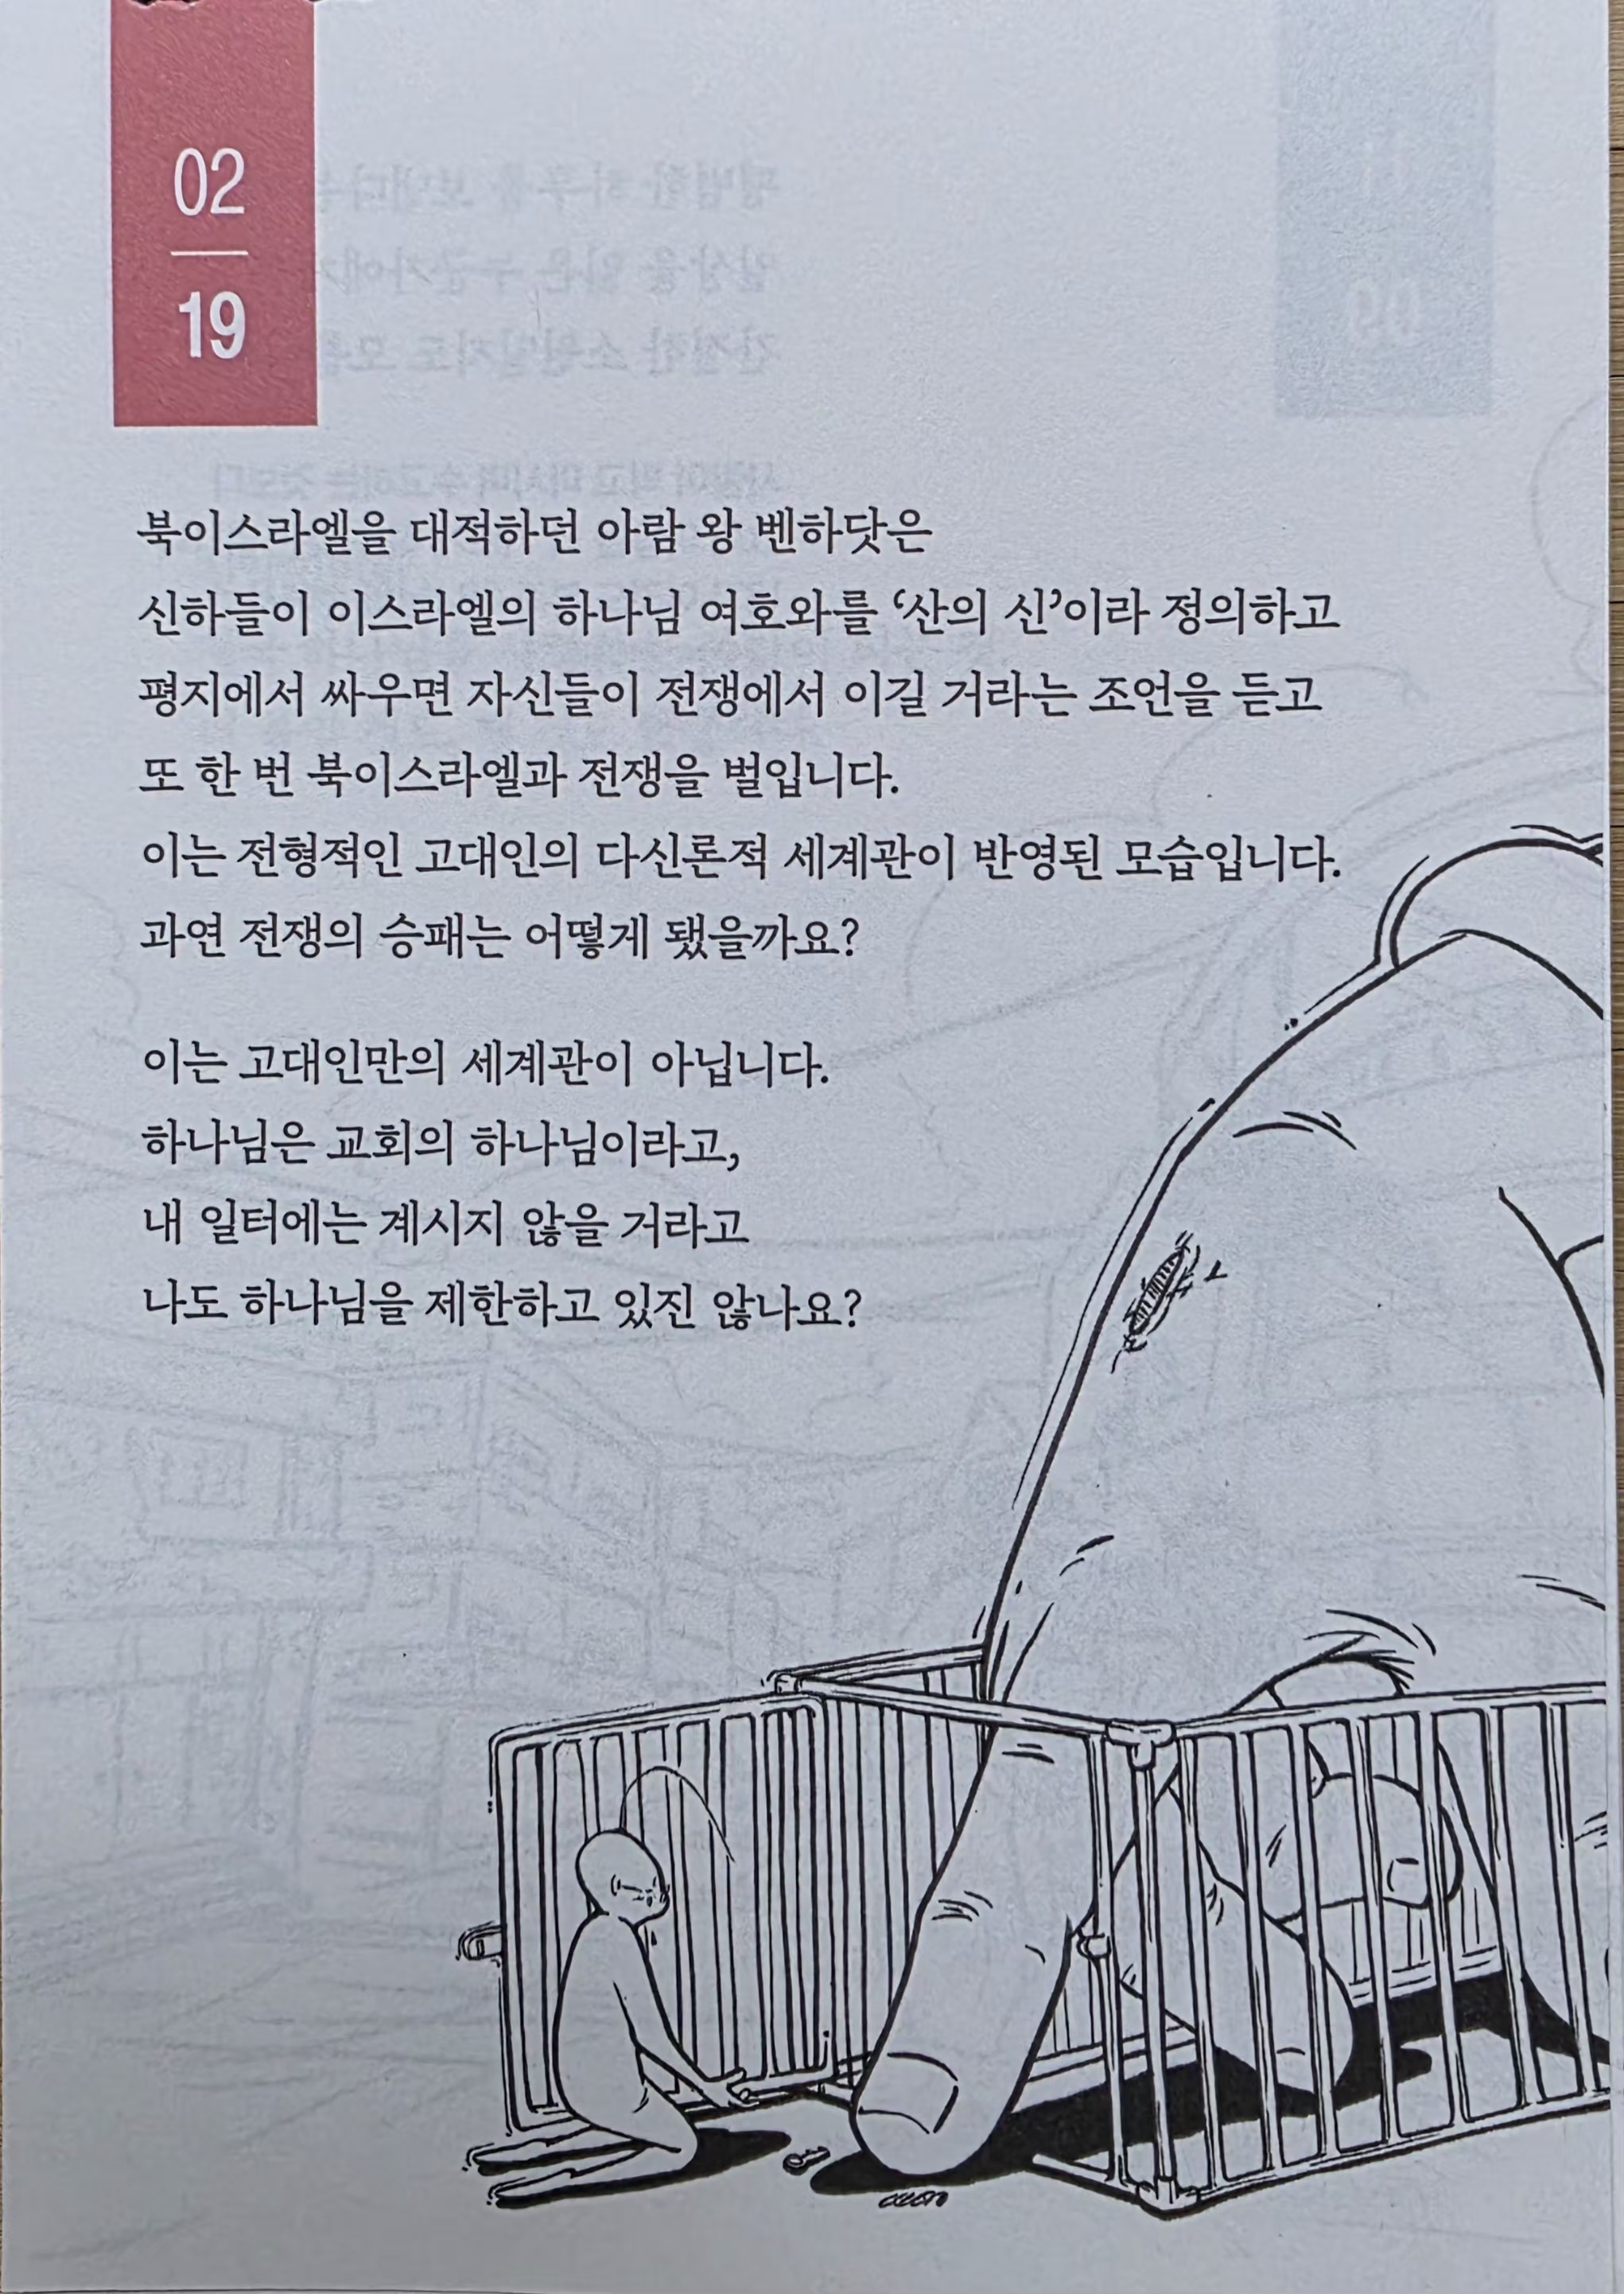 02
19
북이스라엘을 대적하던 아람 왕 벤하닷은
신하들이 이스라엘의 하나님 여호와를 ‘산의 신’이라 정의하고
평지에서 싸우면 자신들이 전쟁에서 이길 거라는 조언을 듣고
또 한 번 북이스라엘과 전쟁을 벌입니다.
이는 전형적인 고대인의 다신론적 세계관이 반영된 모습입니다.
과연 전쟁의 승패는 어떻게 됐을까요?
이는 고대인만의 세계관이 아닙니다.
하나님은 교회의 하나님이라고,
내 일터에는 계시지 않을 거라고
나도 하나님을 제한하고 있진 않나요?